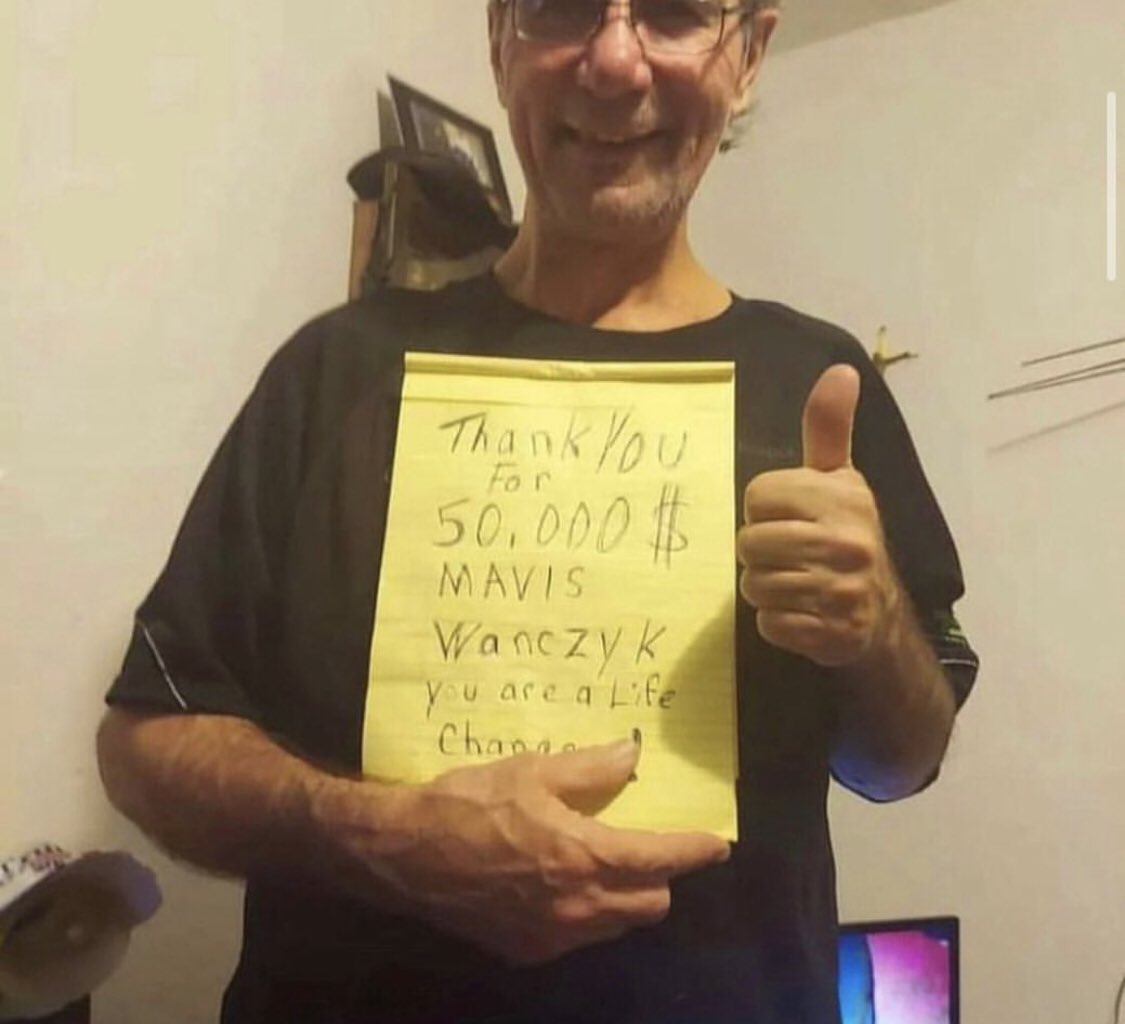 Thank You
For
50,000 $
MAVIS
Wanczyk
you are a Life